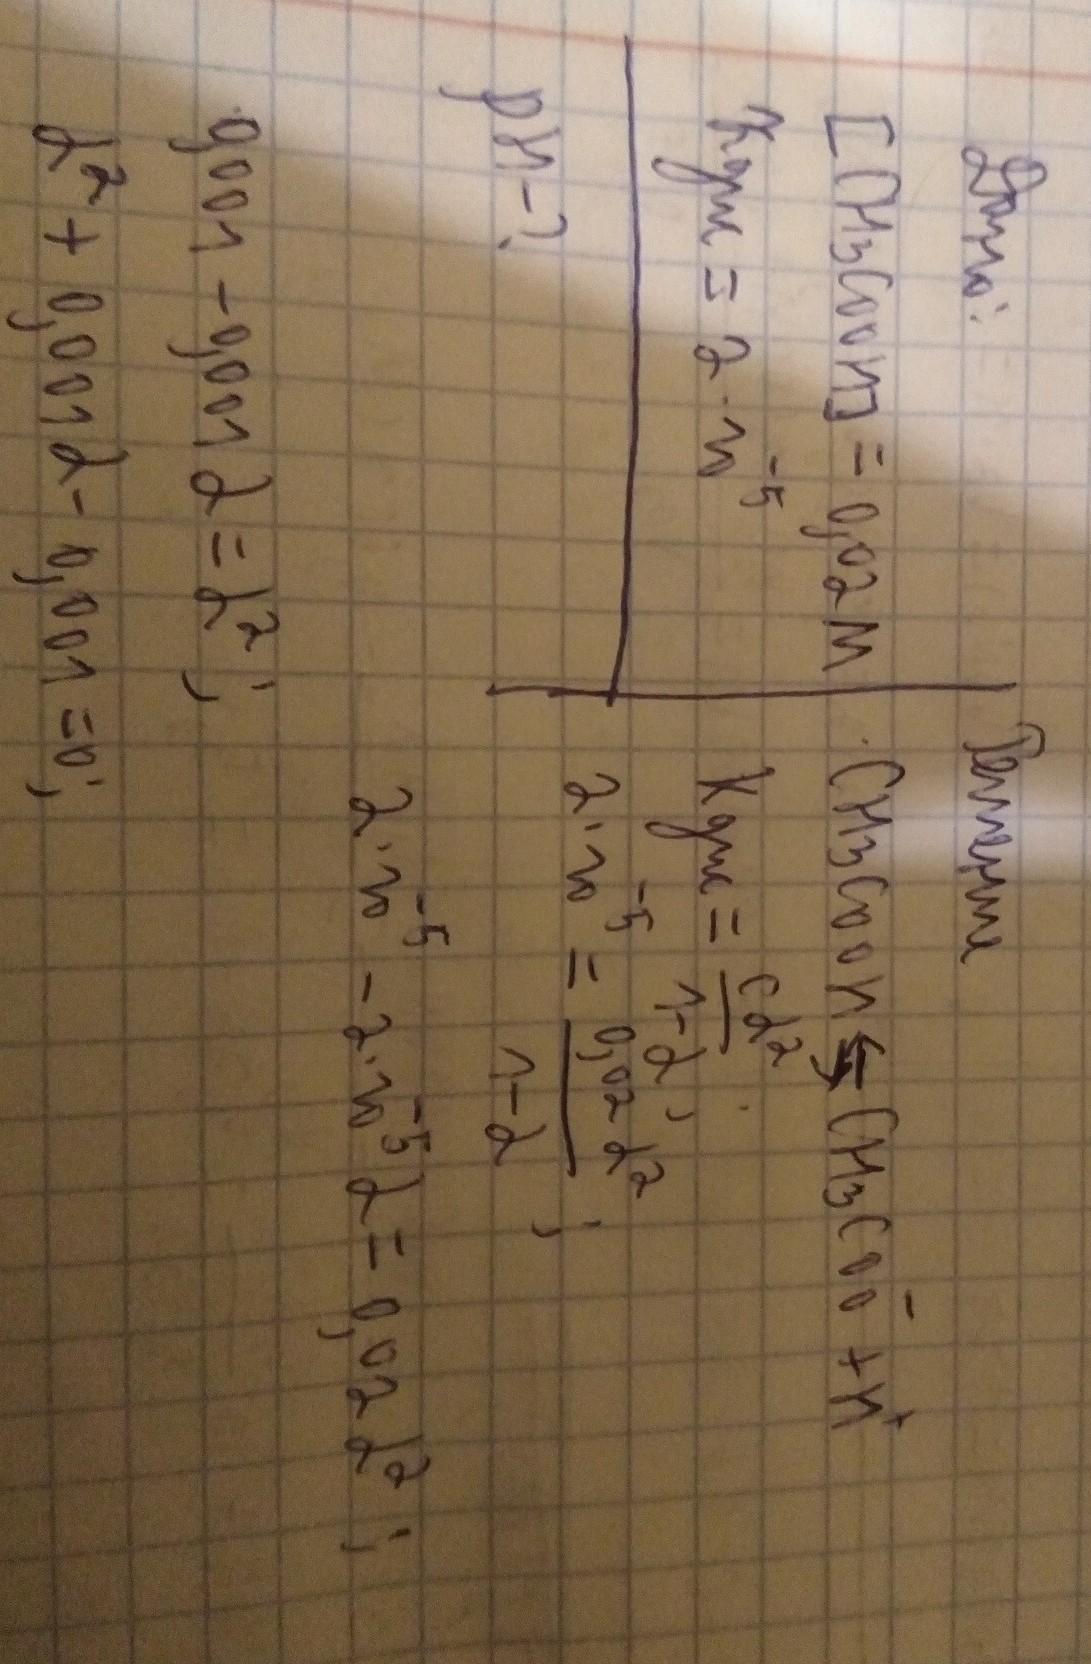 Дано:
[CH3COOH] = 0,02М
Kдис = 2·10⁻⁵
pH-?
Решение
CH3COOH ⇆ CH3COO⁻ + H⁺
Kдис = cα²/1-α;
2·10⁻⁵ = 0,02α²/1-α;
2·10⁻⁵ - 2·10⁻⁵α = 0,02α²;
0,001 - 0,001α = α²;
α² + 0,001α - 0,001 = 0;